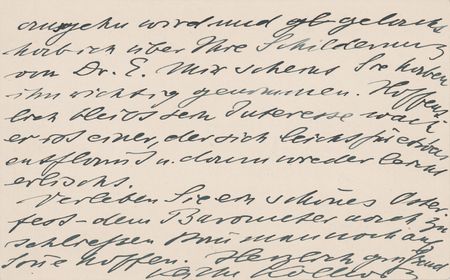 ausgehn wird und ob gelacht
hab ich über Ihre Schilderung
von Dr. E. Mir scheint Sie haben
ihn richtig genommen. Hoffent-
lich bleibt sein Interesse wach
er ist einer, der sich leicht für etwas
entflammt u. dann wieder leicht
erlischt.
Verleben Sie ein schönes Oster
fest – dem Barometer nach zu
schließen kann man noch auf
hoffen. Herzlich grüßend
Käthe Kollwitz